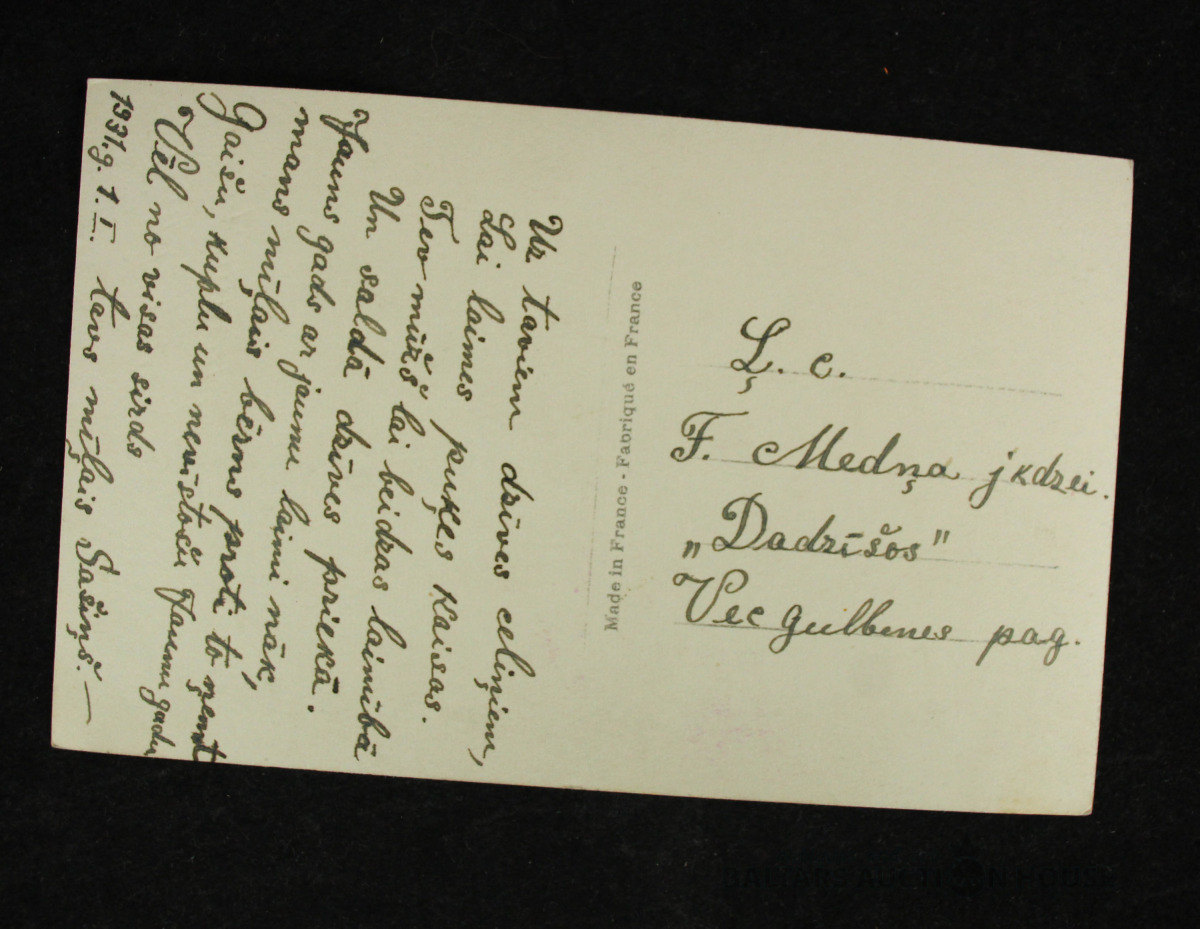 Uz taviem dzīves celiņiem,
Lai laimes puķes kaisas.
Tev mūžs lai beidzas laimībā
Un saldā dzīves priekā.
Jauns gads ar jaunu laimi nāk,
mans mīļais bērns proti to ņemt
Gaišu, kuplu un nevīstošu Jaunu gadu
Vēl no visas sirds
1931.g. 1.I. tavs mīļais Sašiņš.—
Made in France - Fabriqué en France
Ļ. c.
F. Medņa jkdzei.
„Dadzīšos"
Vec gulbenes pag.
BALTARS AUCTION HOUSE